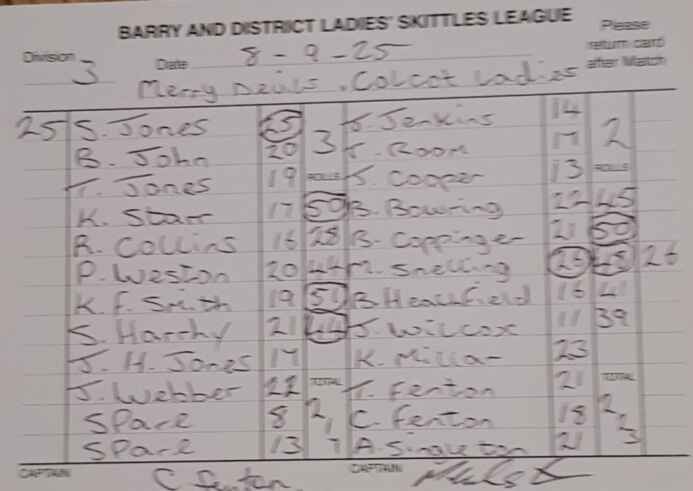 BARRY AND DISTRICT LADIES' SKITTLES LEAGUE
Division 3 Date 8-9-25 Please return card after Match
Merry Devils . Colcot Ladies
25 S. Jones 25 3 J. Jenkins 14 2
B. John 20 T. Room 17
T. Jones 19 ROLLS S. Cooper 13 ROLLS
K. Starr 17 50 B. Bowring 22 45
R. Collins 16 28 B. Coppinger 21 50
P. Weston 20 44 M. Snelling 26 48 26
K. F. Smith 19 51 B. Heathfield 16 41
S. Harthy 21 44 J. Wilcox 11 39
J. H. Jones 17 K. Millar 23
J. Webber 22 TOTAL T. Fenton 21 TOTAL
Spare 8 2, C. Fenton 18 2 2
Spare 13 7 A. Singleton 21 3
CAPTAIN C Fenton CAPTAIN